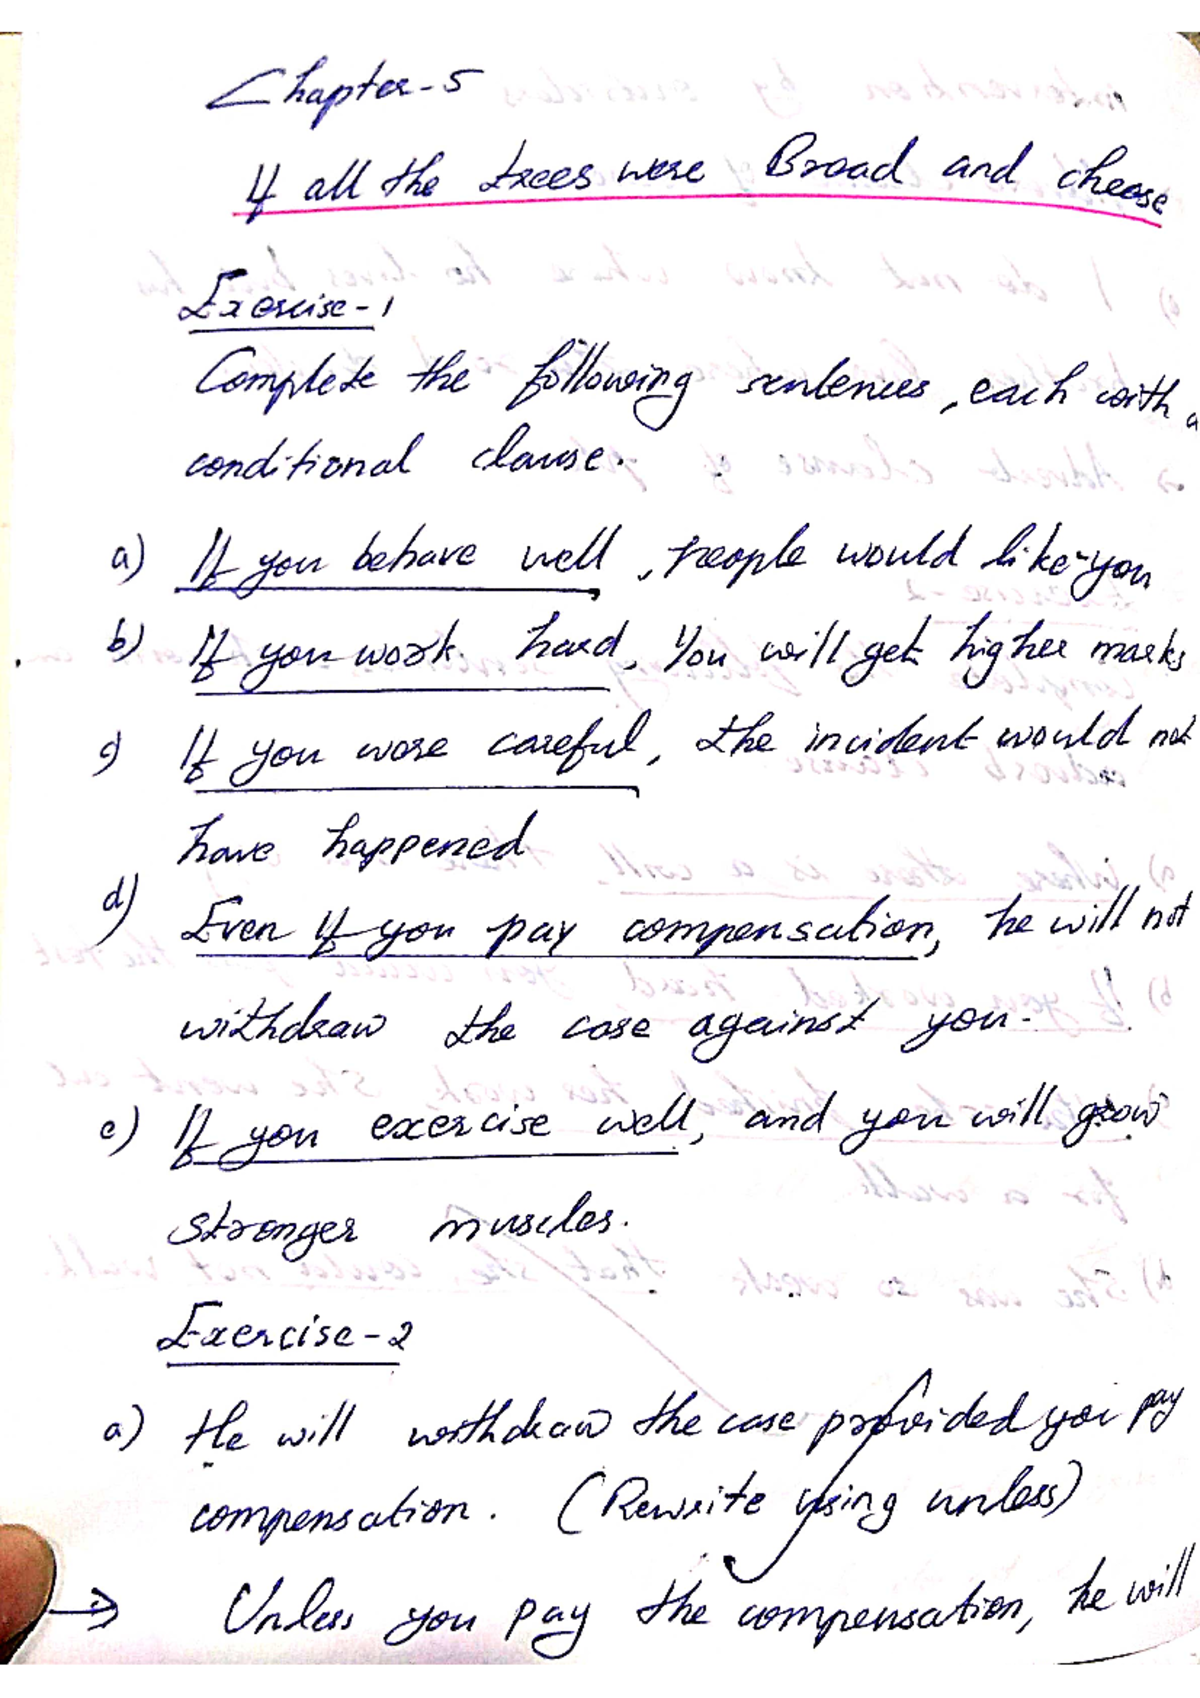 Chapter-5
If all the trees were Broad and cheese
Exercise-1
Complete the following sentences, each with a
conditional clause.
a) If you behave well, people would like you
b) If you work hard, You will get higher marks
c) If you were careful, the incident would not
have happened
d) Even if you pay compensation, he will not
withdraw the case against you.
e) If you exercise well, and you will grow
stronger muscles.
Exercise-2
a) He will withdraw the case provided you pay
compensation. (Rewrite using unless)
→ Unless you pay the compensation, he will